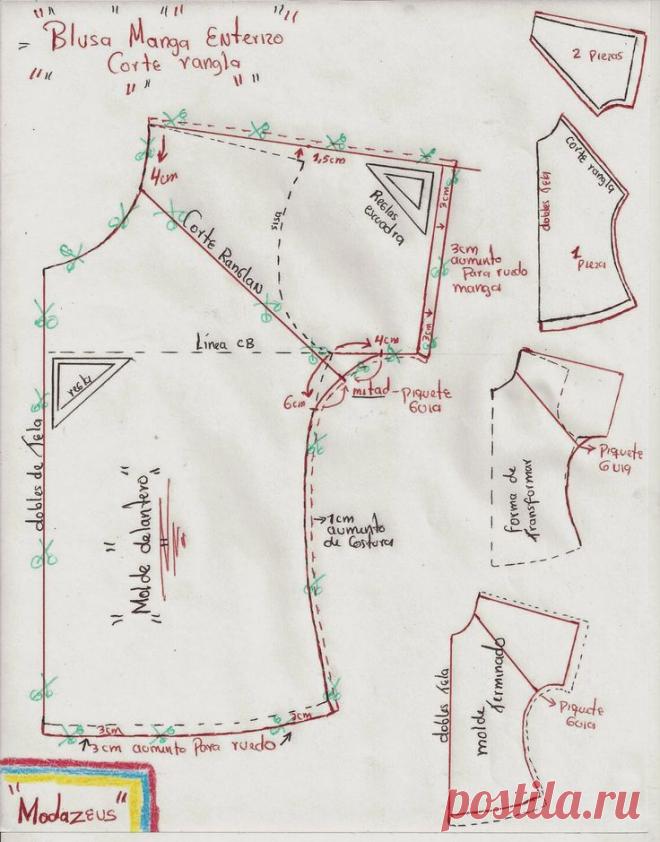 Blusa Manga Enterizo
Corte rangla
4cm
1,5cm
sisa
Corte Ranglan
Reglas
escuadra
3cm
3cm
aumento
Para ruedo
manga
3cm
Línea CB
4cm
6cm
mitad - piquete
Guia
regla
dobles de Tela
"Molde delantero"
1cm
aumento
de Costura
3cm
3cm
3cm aumento Para ruedo
"Modazeus"
2 Piezas
corte rangla
dobles tela
1
Pieza
Piquete
Guia
forma de
Transformar
dobles tela
molde Terminado
Piquete
Guia
postila.ru